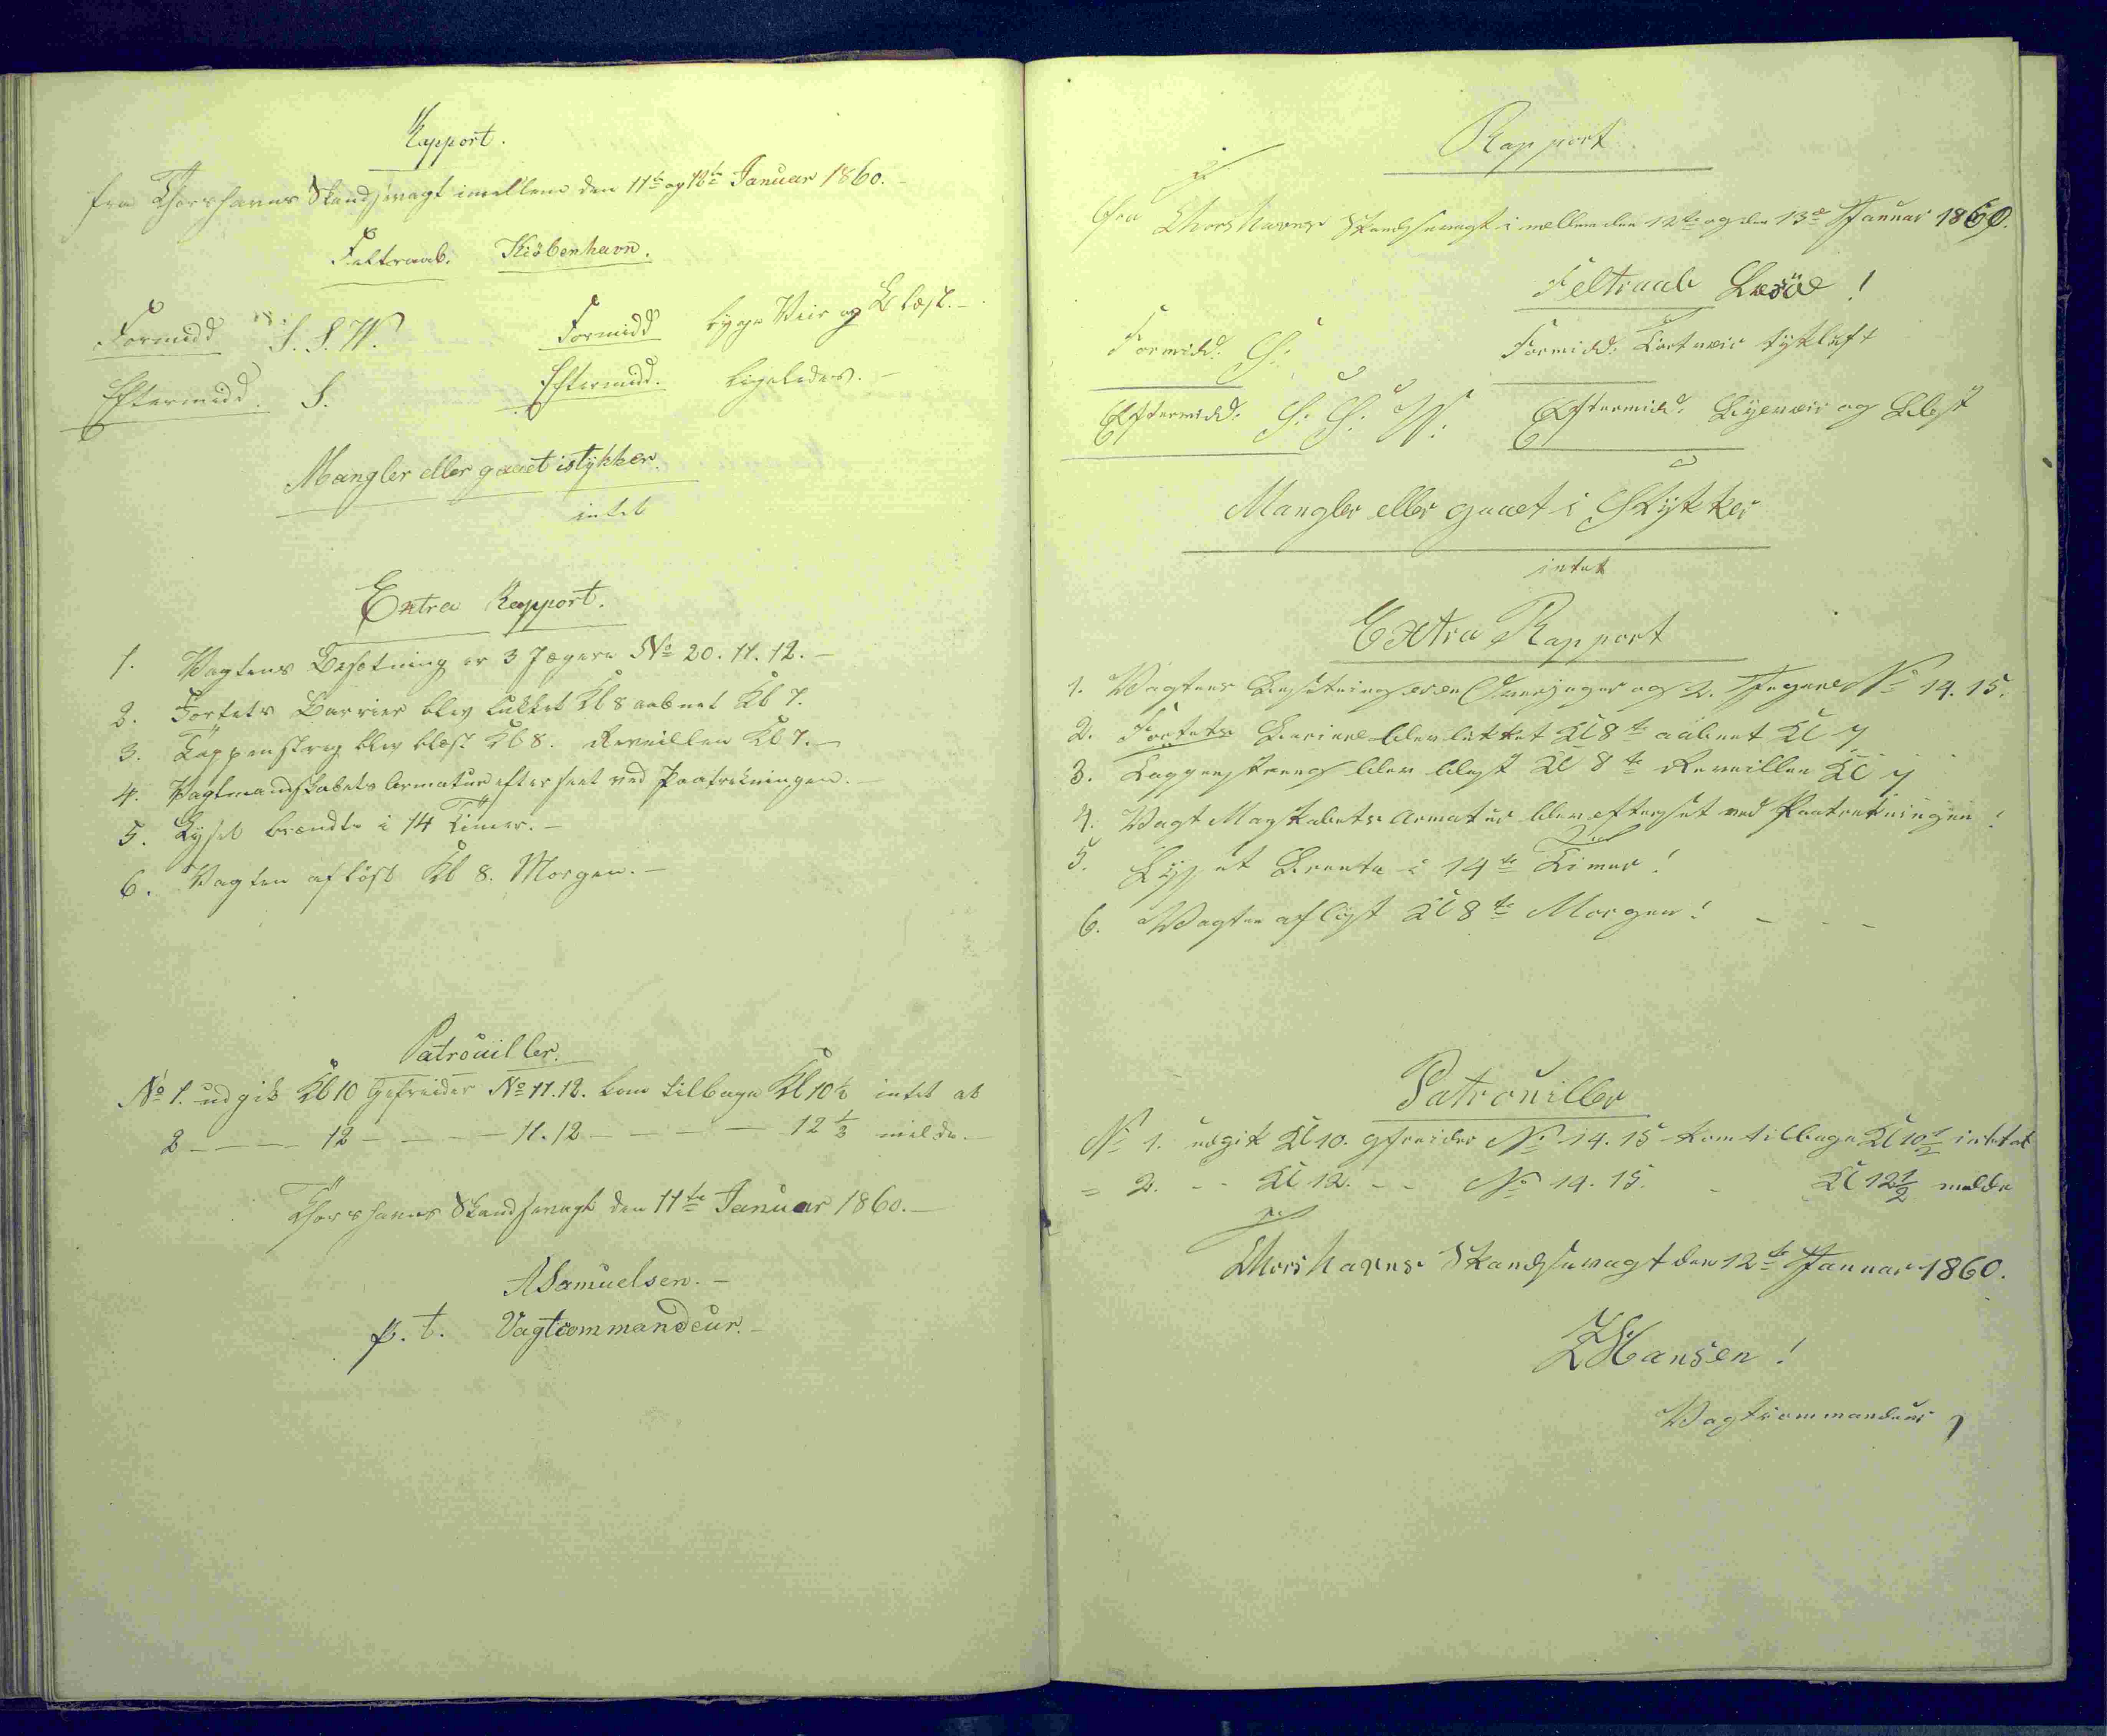 Rapport.
fra Thorshavns Skandsevagt imellem den 11te og 12te Januar 1860.
Feltraab. Kiöbenhavn.
Formidd S. S. W. Formidd Bygge Veir og Blæst.
Eftermidd. S. Eftermidd. ligeledes.
Mangler eller gaaet istykker.
intet
Extra Rapport.
1. Vagtens Besætning er 3 Jægere No 20. 11. 12.
2. Fortets Barrier blev lukket Kl 8 aabnet Kl 7.
3. Tappenstreg blev blæst Kl 8. Reveillen Kl 7.
4. Vagtmandskabets Armatur efterseet ved Paatrædningen.
5. Lyset brændte i 14 Timer.
6. Vagten aflöst Kl 8. Morgen.
Patrouiller.
No 1. udgik Kl 10 Gefreider No 11. 12. kom tilbage Kl 10½ intet at
2 - - - 12 - - - 11. 12 - - - 12½ melde.
Thorshavns Skandsevagt den 11te Januar 1860.
ASamuelsen.
p. t. Vagtcommandeur.
Rapport
fra Thorshavns Skandsevagt i mellem den 12te og den 13de Januar 1860.
Feltraab Lesöe!
Formidd: S: Formidd: Tort veir tykluft
Eftermidd: S: S: W: Eftermidd: Bygeveir og Blest
Mangler eller gaaet i Stykker
intet
Extra Rapport
1. Vagtens Besetning er en Overjeger og 2. Jegere No 14. 15.
2. Fortets Bariere blev lukket Kl 8te aabnet Kl 7
3. Tappenstreng blev blest Kl 8te Reveillen Kl 7
4. Vagt Magskabets Armatur blev efterset ved Paatredningen!
5. Lyset Brente i 14te Timer!
6. Vagten aflöst Kl 8te Morgen!
Patrouiller
No 1. udgik Kl 10. gefreider No 14. 15 kom tilbage Kl 10½ intet at
= 2. - - Kl 12. - - No 14. 15. - Kl 12½ melde
Thorshavns Skandsevagt den 12te Januar 1860.
ZHansen!
Vagtcommandeur